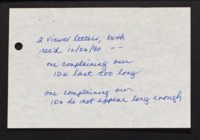 2 viewer letters, both
rec'd 10/26/90 --
one complaining our
IDs last too long
one complaining our
IDs do not appear long enough